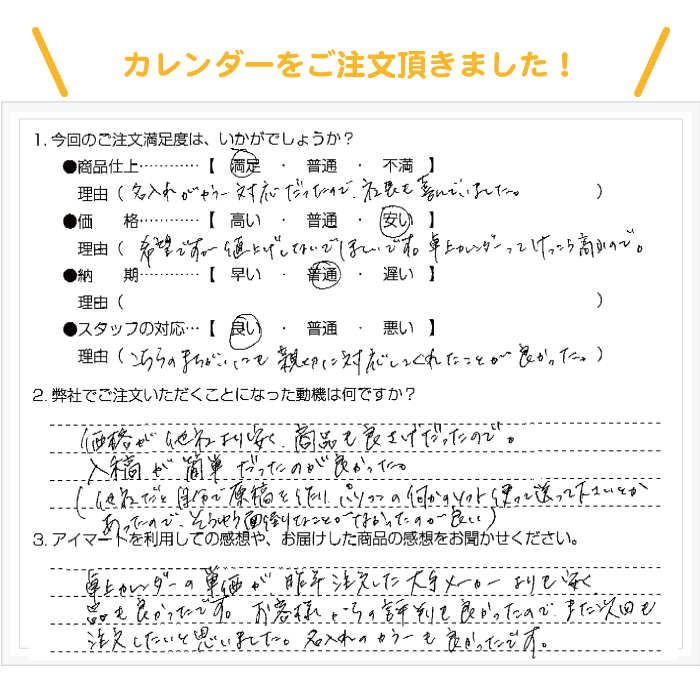 カレンダーをご注文頂きました！
1. 今回のご注文満足度は、いかがでしょうか？
●商品仕上…………【 満足 ・ 普通 ・ 不満 】
理由（ 名入れがカラー対応だったので、社長も喜んでいました。 ）
●価 格…………【 高い ・ 普通 ・ 安い 】
理由（ 希望ですが値上げしないでほしいです。卓上カレンダーってけっこう高いので。
●納 期…………【 早い ・ 普通 ・ 遅い 】
理由（ ）
●スタッフの対応…【 良い ・ 普通 ・ 悪い 】
理由（ こちらのまちがいにも親切に対応してくれたことが良かった。 ）
2. 弊社でご注文いただくことになった動機は何ですか？
価格が他社より安く、商品も良さげだったので。
入稿が簡単だったのが良かった。
（他社だと自分で原稿を作り、パソコンの何かのソフト使って送って下さいとか
あったので、そういう面倒なことがなかったのが良い）
3. アイマートを利用しての感想や、お届けした商品の感想をお聞かせください。
卓上カレンダーの単価が昨年注文した大手メーカーよりも安く、
品も良かったです。お客様からの評判も良かったので、また次回も
注文したいと思いました。名入れのカラーも良かったです。